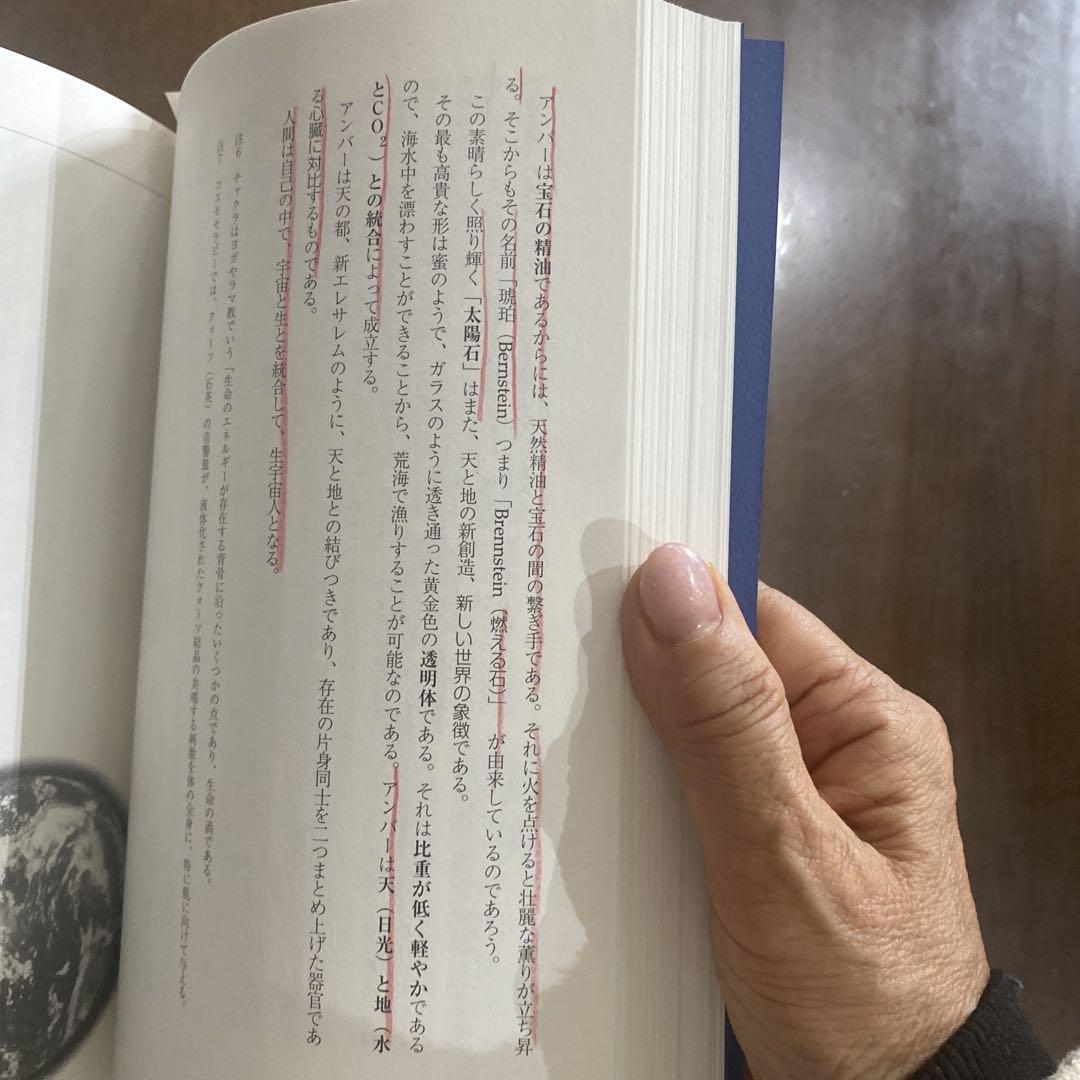 アンバーは宝石の精油であるからには、天然精油と宝石の間の繋ぎ手である。それに火を点けると壮麗な薫りが立ち昇
る。そこからもその名前「琥珀（Bernstein）つまり「Brennstein（燃える石）」が由来しているのであろう。
この素晴らしく照り輝く「太陽石」はまた、天と地の新創造、新しい世界の象徴である。
その最も高貴な形は蜜のようで、ガラスのように透き通った黄金色の透明体である。それは比重が低く軽やかである
ので、海水中を漂わすことができることから、荒海で漁りすることが可能なのである。アンバーは天（日光）と地（水
とCO₂）との統合によって成立する。
アンバーは天の都、新エレサレムのように、天と地との結びつきであり、存在の片身同士を二つまとめ上げた器官であ
る心臓に対比するものである。
人間は自己の中で、宇宙と生とを統合して、生宇宙人となる。
注6 チャクラはヨガやラマ教でいう「生命のエネルギーが存在する背骨に沿ったいくつかの点であり、生命の渦である。
注7 コスモセラピーでは、クォーツ（石英）の音響盤が、液体化されたクォーツ結晶の共鳴する刺激を体の全身に、特に肌に向けて与える。